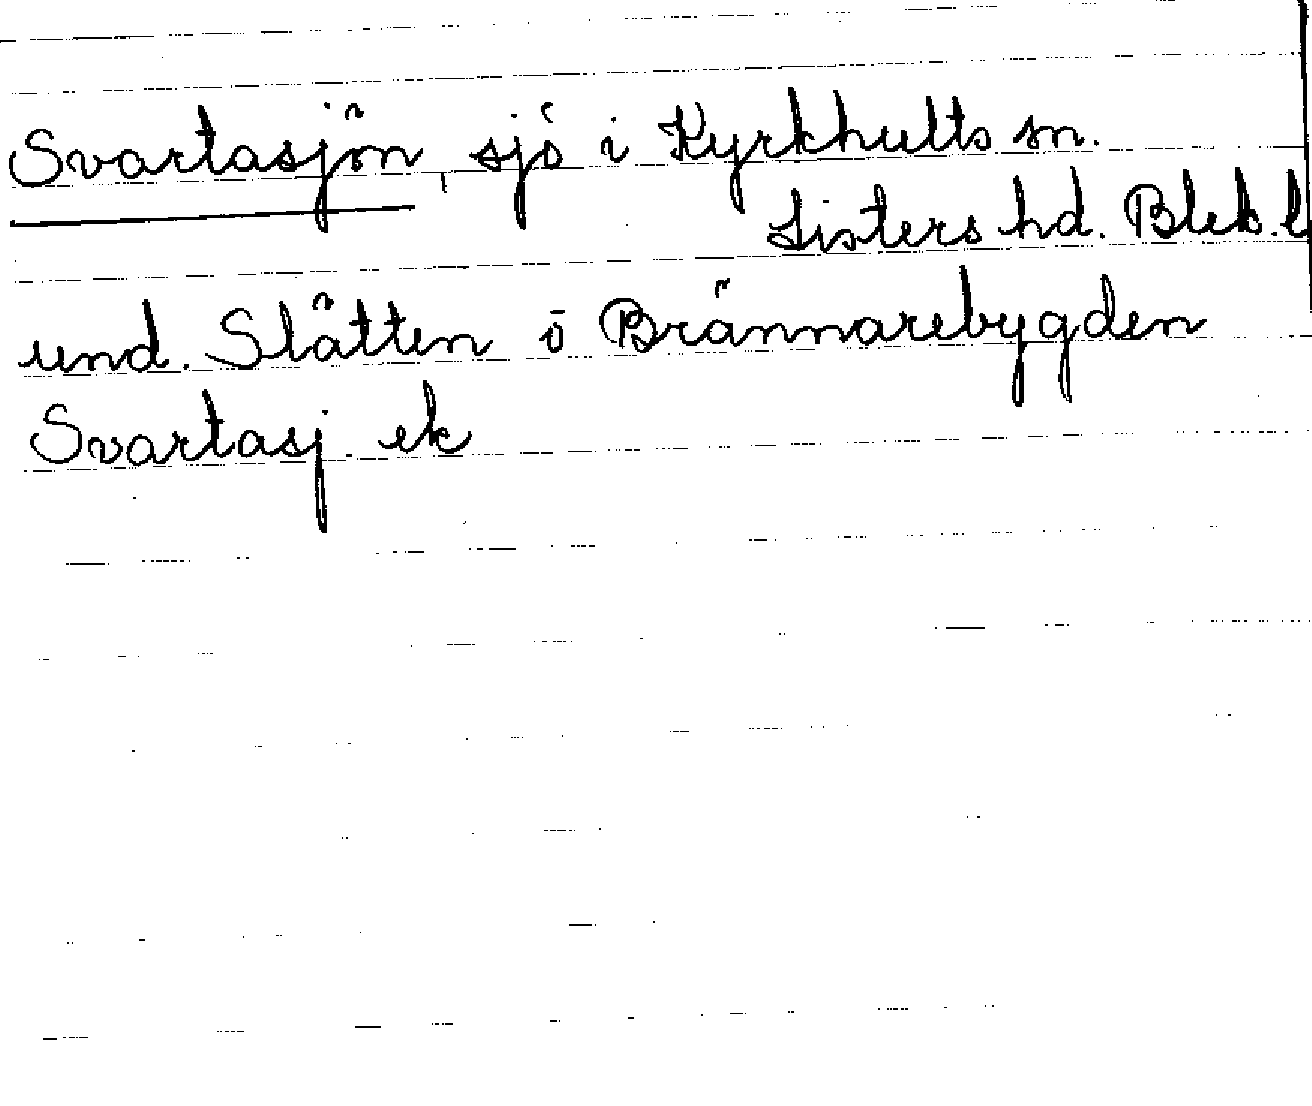 Svartasjön, sjö i Kyrkhults sn.
Listers hd. Blek. l
und. Slätten ö Brännarebygden
Svartasj. ek